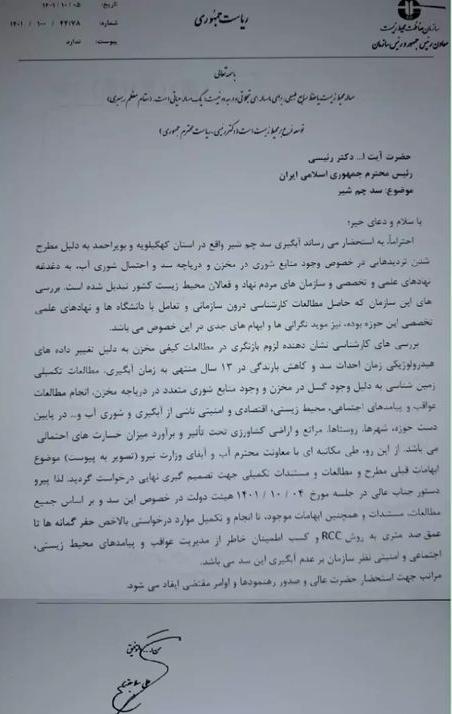 سازمان حفاظت محیط زیست
معاون رئیس جمهور و رئیس سازمان
ریاست جمهوری
تاریخ: ۱۴۰۱/۱۰/۰۵
شماره: ۱۴۰۱ / ۱۰۰ / ۴۴۷۷۸
پیوست: ندارد
باسمه تعالی
توسعه فرع بر محیط زیست است (دکتر رئیسی، ریاست محترم جمهوری)
حضرت آیت ا... دکتر رئیسی
رئیس محترم جمهوری اسلامی ایران
موضوع: سد چم شیر
با سلام و دعای خیر؛
احتراماً، به استحضار می رساند آبگیری سد چم شیر واقع در استان کهگیلویه و بویراحمد به دلیل مطرح
شدن تردیدهایی در خصوص وجود منابع شوری در مخزن و دریاچه سد و احتمال شوری آب، به دغدغه
نهادهای علمی و تخصصی و سازمان های مردم نهاد و فعالان محیط زیست کشور تبدیل شده است. بررسی
های این سازمان که حاصل مطالعات کارشناسی درون سازمانی و تعامل با دانشگاه ها و نهادهای علمی
تخصصی این حوزه بوده، نیز موید نگرانی ها و ابهام های جدی در این خصوص می باشد.
بررسی های کارشناسی نشان دهنده لزوم بازنگری در مطالعات کیفی مخزن به دلیل تغییر داده های
هیدرولوژیکی زمان احداث سد و کاهش بارندگی در ۱۳ سال منتهی به زمان آبگیری، مطالعات تکمیلی
زمین شناسی به دلیل وجود گسل در مخزن و وجود منابع شوری متعدد در دریاچه مخزن، انجام مطالعات
عواقب و پیامدهای اجتماعی، محیط زیستی، اقتصادی و امنیتی ناشی از آبگیری و شوری آب و... در پایین
دست حوزه، شهرها، روستاها، مراتع و اراضی کشاورزی تحت تأثیر و برآورد میزان خسارت های احتمالی
می باشد. از این رو، طی مکاتبه ای با معاونت محترم آب و آبفای وزارت نیرو (تصویر به پیوست) موضوع
ابهامات قبلی مطرح و مطالعات و مستندات تکمیلی جهت تصمیم گیری نهایی درخواست گردید. لذا پیرو
دستور جناب عالی در جلسه مورخ ۱۴۰۱/۱۰/۰۴ هیئت دولت در خصوص این سد و بر اساس جمیع
مطالعات، مستندات و همچنین ابهامات موجود، تا انجام و تکمیل موارد درخواستی بالاخص حفر گمانه ها تا
عمق صد متری به روش RCC و کسب اطمینان خاطر از مدیریت عواقب و پیامدهای محیط زیستی،
اجتماعی و امنیتی نظر سازمان بر عدم آبگیری این سد می باشد.
مراتب جهت استحضار حضرت عالی و صدور رهنمودها و اوامر مقتضی ایفاد می شود.